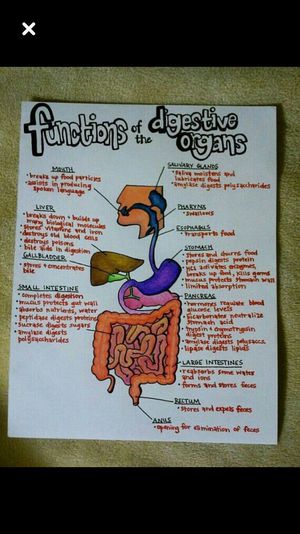 functions of the digestive organs
MOUTH
• breaks up food particles
• assists in producing
spoken language
LIVER
• breaks down + builds up
many biological molecules
• stores vitamins and iron
• destroys old blood cells
• destroys poisons
• bile aids in digestion
GALLBLADDER
• stores + concentrates
bile
SMALL INTESTINE
• completes digestion
• mucus protects gut wall
• absorbs nutrients, water
• peptidase digests proteins
• sucrase digests sugars
• amylase digests
polysaccharides
SALIVARY GLANDS
• saliva moistens and
lubricates food
• amylase digests polysaccharides
PHARYNX
• swallows
ESOPHAGUS
• transports food
STOMACH
• stores and churns food
• pepsin digests protein
• HCl activates enzymes,
breaks up food, kills germs
• mucus protects stomach wall
• limited absorption
PANCREAS
• hormones regulate blood
glucose levels
• bicarbonates neutralize
stomach acid
• trypsin + chymotrypsin
digest proteins
• amylase digests polysacc.
• lipase digests lipids
LARGE INTESTINES
• reabsorbs some water
and ions
• forms and stores feces
RECTUM
• stores and expels feces
ANUS
• opening for elimination of feces